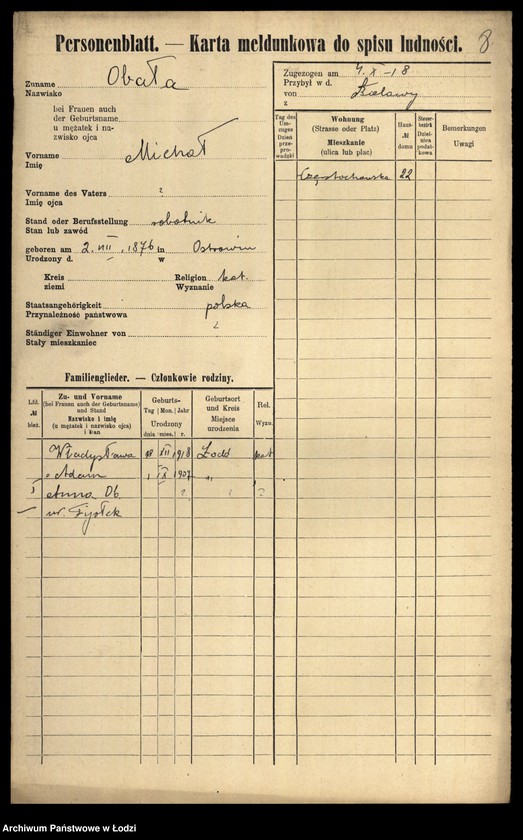 Personenblatt. — Karta meldunkowa do spisu ludności.
8
Zuname Obała
Nazwisko
bei Frauen auch
der Geburtsname
u mężatek i na-
zwisko ojca
Vorname Michał
Imię
Vorname des Vaters ?
Imię ojca
Stand oder Berufsstellung robotnik
Stan lub zawód
geboren am 2. VII. 1876 in Ostrowin
Urodzony d. w
Kreis Religion kat.
ziemi Wyznanie
Staatsangehörigkeit polska
Przynależność państwowa
Ständiger Einwohner von ?
Stały mieszkaniec
Zugezogen am 4. X - 18
Przybył w d.
von
z
Tag des Um-zuges Dzień prze-prowadzki
Wohnung (Strasse oder Platz) Mieszkanie (ulica lub plac)
Haus- № domu
Steuer-bezirk Dziel-nica podat-kowa
Bemerkungen Uwagi
Częstochowska 22
Familienglieder. — Członkowie rodziny.
Lfd. № bież.
Zu- und Vorname (bei Frauen auch der Geburtsname) und Stand Nazwisko i imię (u mężatek i nazwisko ojca) i stan
Geburts- Tag Mon. Jahr Urodzony dnia mies. r.
Geburtsort und Kreis Miejsce urodzenia
Rel. Wyzn.
Władysława XII 1918 Łódź kat
" Adam 1 IX 1907 "
Anna Ob. ? ? ?
ur. Fijołek
Archiwum Państwowe w Łodzi